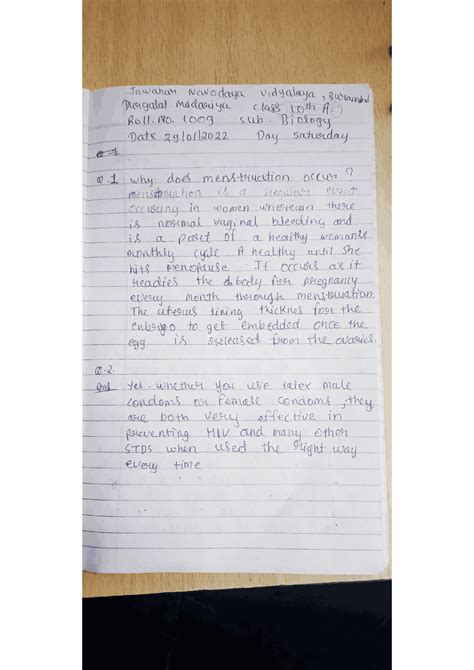 Jawahar Navodaya Vidyalaya,
Madariya Class 10th A
Roll. No. 1009 Sub. Biology
Date 29/01/2022 Day Saturday
Q.1 why does menstruation occur ?
menstruation is a regular event
occuring in women wherein there
is normal vaginal bleeding and
is a part of a healthy woman's
monthly cycle. A healthy until she
hits menopause. It occurs as it
readies the body for pregnancy
every month through menstruation.
The uterus lining thicknes for the
embryo to get embedded once the
egg is released from the ovaries.
Q.2.
Ans Yes. whether you use latex male
condoms or female condoms, they
are both very effective in
preventing HIV and many other
STDS when used the right way
every time